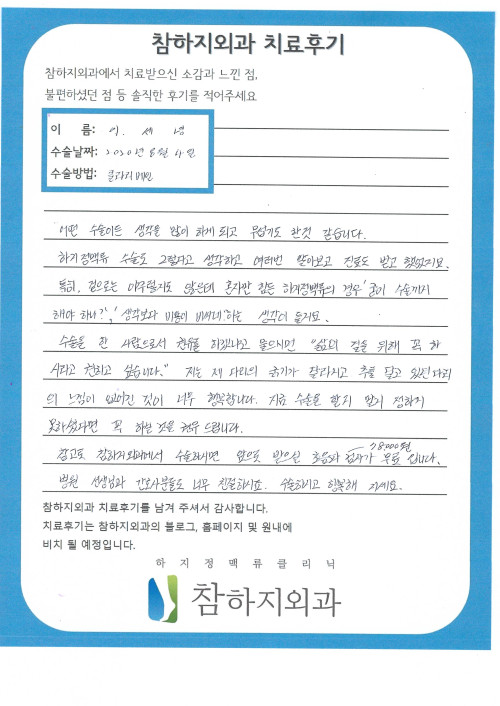 참하지외과 치료후기
참하지외과에서 치료받으신 소감과 느낀 점,
불편하셨던 점 등 솔직한 후기를 적어주세요
이 름: 이 세 영
수술날짜: 2020년 8월 4일
수술방법: 클라리베인
어떤 수술이든 생각을 많이 하게 되고 무섭기도 한것 같습니다.
하지정맥류 수술도 그렇다고 생각하고 여러번 알아보고 진료도 받고 했었지요.
특히, 겉으로는 아무렇지도 않은데 혼자만 힘든 하지정맥류의 경우 '굳이 수술까지
해야 하나?', '생각보다 비용이 비싸네' 하는 생각이 들지요.
수술을 한 사람으로서 추천을 하겠냐고 물으시면 "삶의 질을 위해 꼭 하
시라고 전하고 싶습니다." 저는 제 다리의 굵기가 달라지고 추를 달고 있던 다리
의 느낌이 없어진 것이 너무 행복합니다. 지금 수술을 할지 말지 정하지
못하셨다면 꼭 하는 것을 권유 드립니다.
참고로 참하지외과에서 수술하시면 앞으로 받으실 초음파 검사가 무료 입니다.
78,000원
병원 선생님과 간호사분들도 너무 친절하시고. 수술하시고 행복해 지세요.
참하지외과 치료후기를 남겨 주셔서 감사합니다.
치료후기는 참하지외과의 블로그, 홈페이지 및 원내에
비치 될 예정입니다.
하지정맥류클리닉
참하지외과